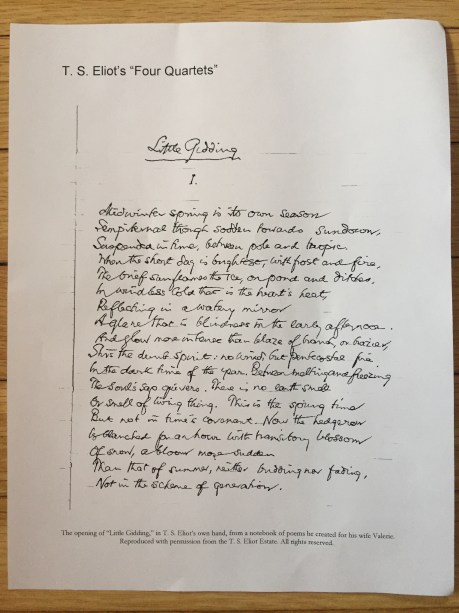 T. S. Eliot's "Four Quartets"
Little Gidding
I.
Midwinter spring is its own season
Sempiternal though sodden towards sundown,
Suspended in time, between pole and tropic.
When the short day is brightest, with frost and fire,
The brief sun flames the ice, on pond and ditches,
In windless cold that is the heart's heat,
Reflecting in a watery mirror
A glare that is blindness in the early afternoon.
And glow more intense than blaze of branch, or brazier,
Stirs the dumb spirit: no wind, but pentecostal fire
In the dark time of the year. Between melting and freezing
The soul's sap quivers. There is no earth smell
Or smell of living thing. This is the spring time
But not in time's covenant. Now the hedgerow
Is blanched for an hour with transitory blossom
Of snow, a bloom more sudden
Than that of summer, neither budding nor fading,
Not in the scheme of generation.
The opening of "Little Gidding," in T. S. Eliot's own hand, from a notebook of poems he created for his wife Valerie.
Reproduced with permission from the T. S. Eliot Estate. All rights reserved.